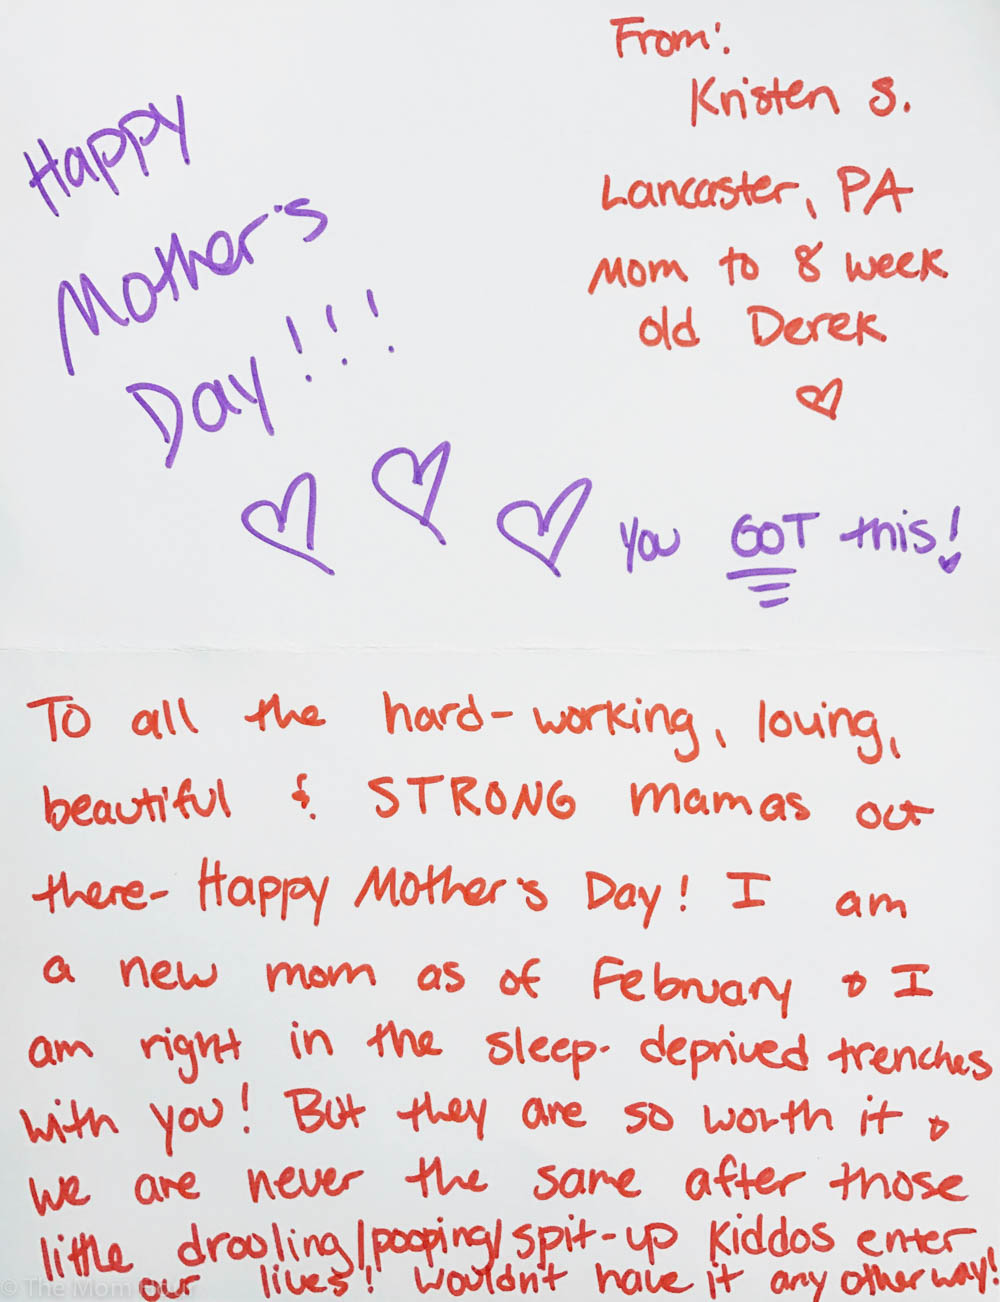 From:
Kristen S.
Lancaster, PA
Mom to 8 week
old Derek
Happy
Mother's
Day!!!
You GOT this!
To all the hard-working, loving,
beautiful & STRONG mamas out
there- Happy Mother's Day! I am
a new mom as of February & I
am right in the sleep-deprived trenches
with you! But they are so worth it &
we are never the same after those
little drooling/pooping/spit-up kiddos enter
our lives! Wouldn't have it any other way!
© The Mom Hour